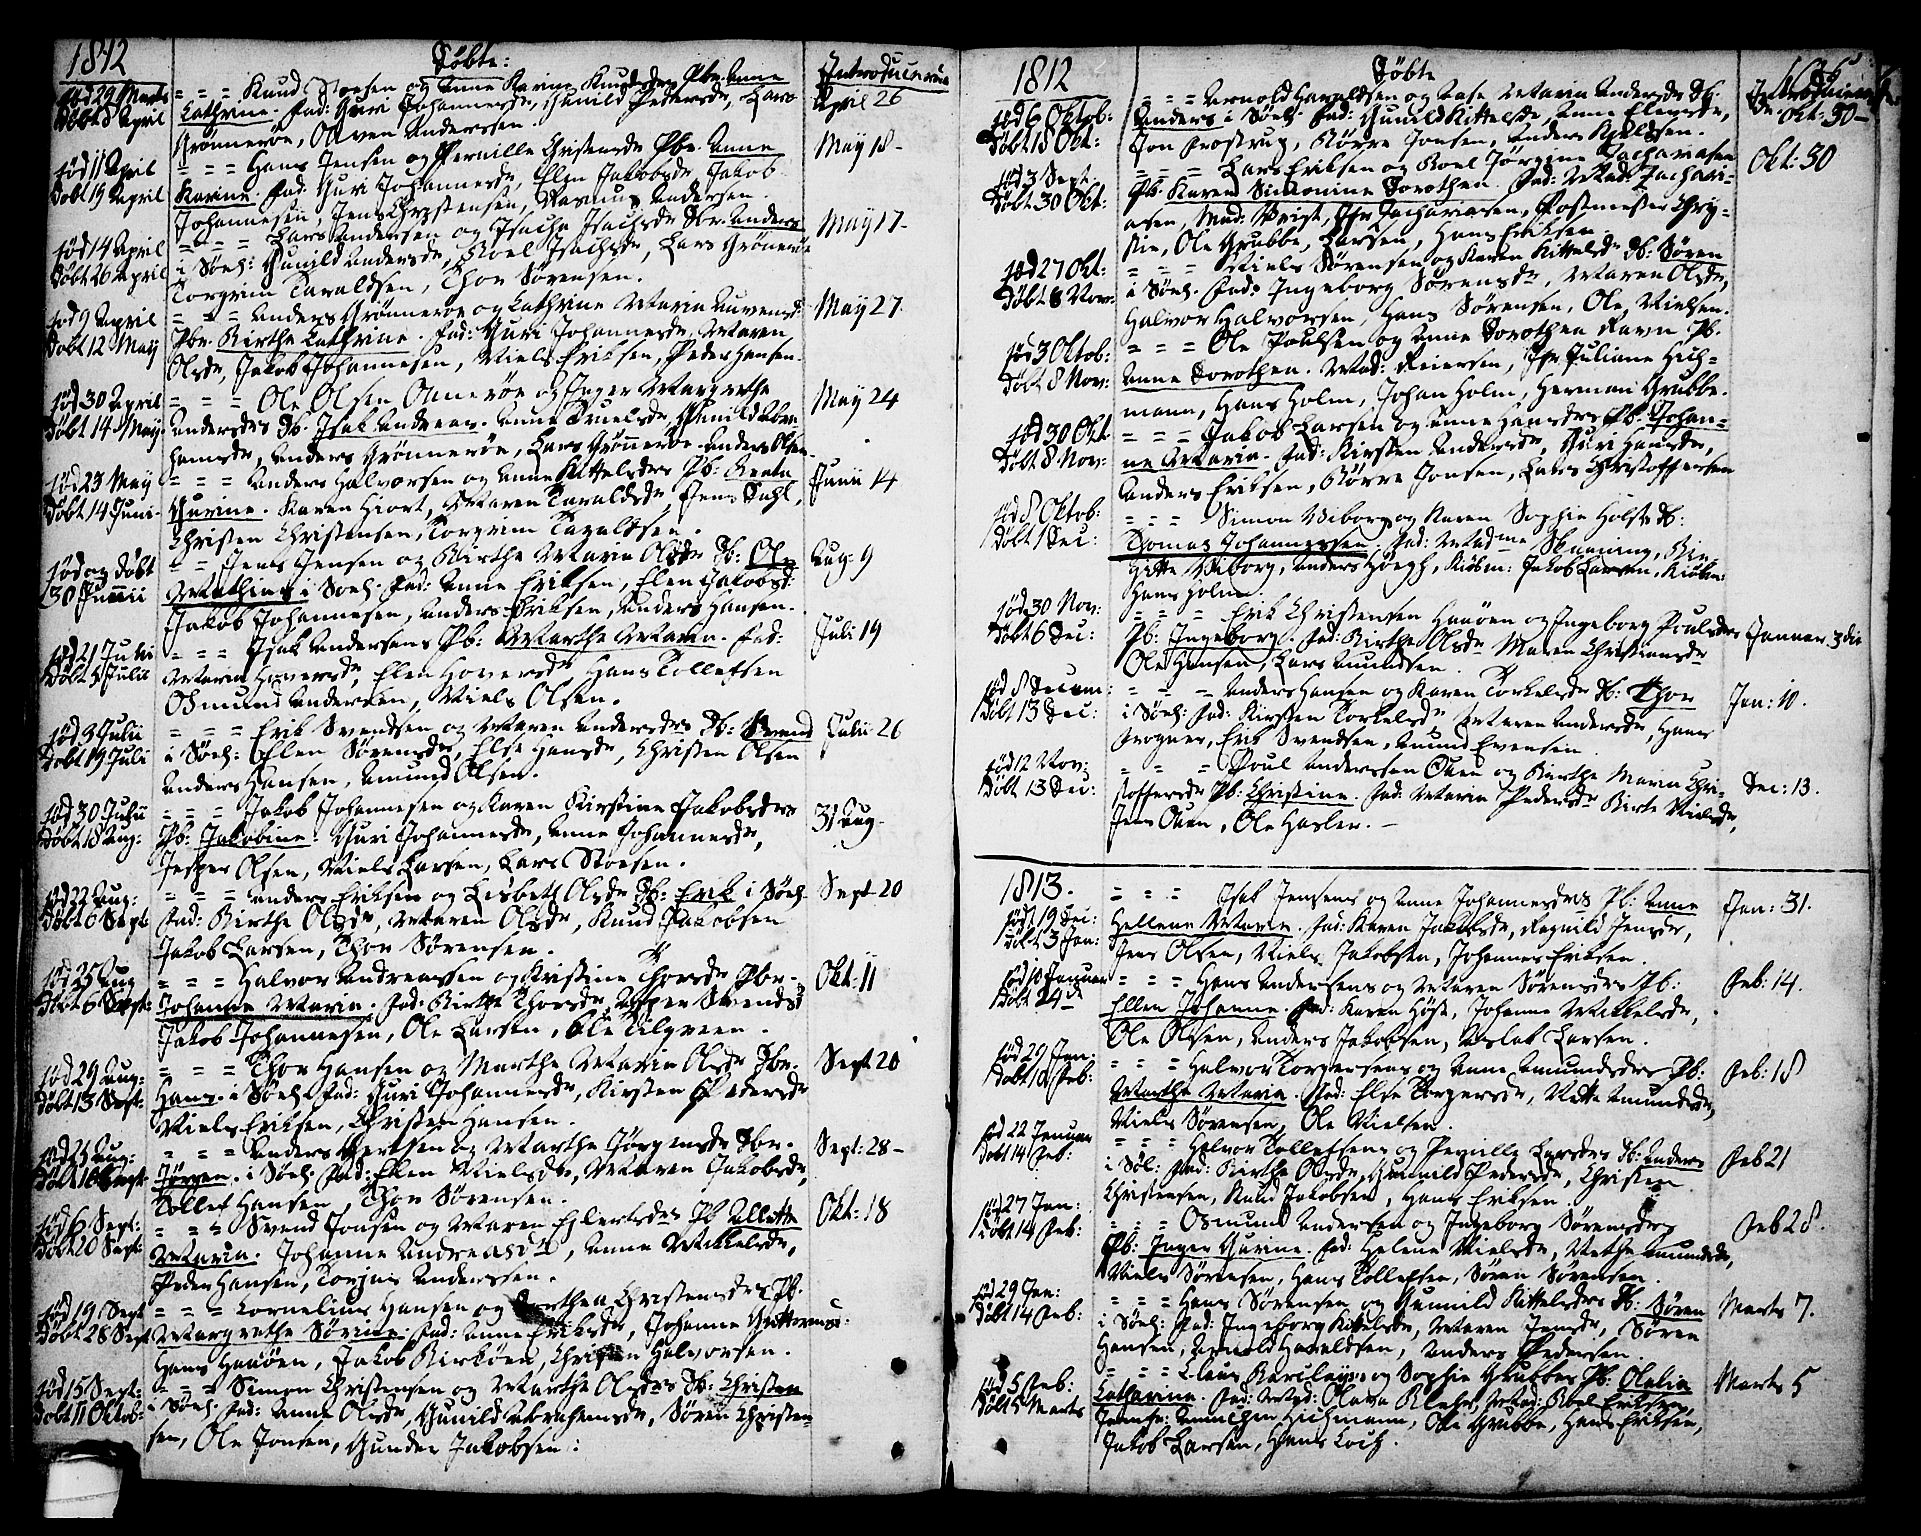 1812
Døbte:
Introducerede
fød 29 Marts
Døbt 8 April
= = = Knud Stoesen og Anne Karine Knudsdtr Pbr. Anne
Cathrine. Fad: Guri Johannesdr, Gunild Pedersdr, Lars
Grønnerøe, Ole Andersen.
April 26
fød 11 April
Døbt 19 April
= = = Hans Jensen og Pernille Christensdr Pbr. Anne
Karine. Fad: Guri Johannesdr, Elen Jakobsdr, Jakob
Johannesen, Jens Christensen, Rasmus Andersen.
May 18 -
fød 14 April
Døbt 26 April
= = = Lars Andersen og Isachsdr Dbr. Anders
i Søeh: Gunild Andersdr, Boel Isachsdr, Lars Grønerøe
Torgrim Taraldsen, Thor Sørensen.
May 17 -
fød 9 April
Døbt 12 May
= = = Anders Grønnerøe og Cathrine Maria
Pbr. Birthe Cathrine. Fad: Guri Johannesdr, Maren
Olsdr, Jakob Johannesen, Niels Eriksen, Peder Hansen.
May 27.
fød 30 April
Døbt 14 May
= = = Ole Olsen Omnerøe og Inger Margrethe
Andersdrs Db. Isak Andreas. Anne Truelsdr, Gunild Abra-
hamsdr, Anders Grønnerøe, Lars Grønnerøe, Anders Olsen.
May 24
fød 23 May
Døbt 14 Juni
= = = Anders Halvorsen og Anne Kittelsdrs Pb: Anete
Gurine. Karen Hiort, Maren Taraldsdr, Jens Dahl,
Christen Christensen, Torgrim Taraldsen.
Junii 14
fød og døbt
30 Junii
= = Jens Jensen og Birthe Maria Olsdr Db: Ole
Mathias i Søeh. Fad: Anne Eriksen, Elen Jakobsd:
Jakob Johannesen, Anders Eriksen, Anders Hansen.
Aug: 9
fød 21 Juni
Døbt 5 Julii
= = = Isak Andersens Pb: Marthe Maria. Fad:
Maria Hoversdr, Elen Hoversdr, Hans Tollefsen
Osmund Andersen, Niels Olsen.
Juli 19
fød 9 Julii
Døbt 19 Juli
= = = Erik Svendsen og Maren Andersdrs Db: Svend
i Søeh: Elen Sørensdr, Else Hansdr, Christen Olsen
Anders Hansen, Amund Olsen.
Julii 26
fød 30 Julii
Døbt 18 Aug:
= = = Jakob Johannesen og Karen Kirstine Jakobsdrs
Pb: Jakobine. Guri Johannesdr, Anne Johannesdr,
Jesper Olsen, Niels Larsen, Lars Stoesen.
31 Aug -
fød 22 Aug:
Døbt 6 Sept
= = = Anders Eriksen og Lisbeth Olsdr Db: Erik i Søeh.
Fad: Birthe Olsdr, Maren Olsdr, Knud Jakobsen
Jakob Larsen, Thor Sørensen.
Sept 20
fød 25 Aug
Døbt 6 Sept:
= = = Halvor Andreassen og Kristine Thorsdr Pbr.
Johanne Maria. Fad: Birthe Thorsdr, Svendsd
Jakob Johannesen, Ole Larsen, Ole Tilgreen.
Okt: 11
fød 29 Aug:
Døbt 13 Sept:
= = = Thor Hansen og Marthe Maria Olsdr Dbr.
Hans. i Søeh. Fad: Guri Johannesdr, Kirsten Pedersdr
Niels Eriksen, Christen Hansen.
Sept 20
fød 25 Aug:
= = = Anders Gertsen og Marthe Jørgensdr Dbr.
Jørgen. i Søeh: Fad: Elen Nielsdr, Maren Jakobsdr,
Tollef Hansen, Thor Sørensen.
Sept: 28 -
fød 6 Sept:
Døbt 20 Sept:
= = = Svend Jonsen og Maren Eglertsdrs Pb Allette
Maria. Johanne Andreasdr, Anne Mikkelsdr,
Peder Hansen, Torjus Anderssen.
Okt: 18
fød 19 Sept
Døbt 28 Sept
= = = Cornelius Hansen og Dorthea Christensdrs Pb.
Margrethe Sørine. Fad: Anne Eriksdr, Johanne Guttormsd:
Hans Haaöen, Jakob Birköen, Christen Halvorsen.
fød 15 Sept:
Døbt 11 Oktob:
= = = Simon Christensen og Marthe Olsdrs Db: Christen
i Søeh. Fad: Anne Olsdr, Gunild Abrahamsdr, Søren Christen-
sen, Ole Jonsen, Gunder Jakobsen:
1812
Døbte
fød 6 Oktob:
Døbt 18 Okt:
= = = Arnold Haraldsen og Aase Maria Andersdr Db:
Anders i Søeh. Fad: Gunild Kittelsdr, Anne Elevsdr,
Jon Prostrup, Børre Jonsen, Anders Kjeldsen.
Okt: 30 -
fød 3 Sept:
Døbt 30 Okt:
= = = Lars Eriksen og Boel Jörgine Zachariasen
Pb. Karen Simonine Dorothea. Fad: Mad: Zachari-
asen, Mad: Weigt, Jfr Zachariasen, Postmester Chry-
stie, Ole Grubbe, Larsen, Hans Eriksen.
Okt: 30
fød 27 Okt:
Døbt 8 Nov:
= = = Niels Sørensen og Karen Kittelsdr Db: Søren
i Søeh. Fad: Ingeborg Sørensdr, Maren Olsdr,
Halvor Halvorsen, Hans Sørensen, Ole Nielsen.
fød 3 Oktob:
Døbt 8 Nov:
= = = Ole Poulsen og Anne Dorothea Ravn Pb.
Anne Dorothea. Mad: Reiersen, Jfr Juliane Hich-
mann, Hans Holm, Johan Holm, Herman Grubbe.
fød 30 Okt
Døbt 8 Nov:
= = = Jakob Larsen og Anne Hansdrs Pb. Johan-
ne Maria. Fad: Kirsten Andersdr, Guri Hansdr,
Anders Eriksen, Børre Jonsen, Lars Christoffersen
fød 8 Oktob:
Døbt 1 Dec:
= = = Simon Viborg og Karen Sophie Holst Db:
Thomas Johannessen. Fad: Madme Skanning, Bir-
gitte Viborg, Anders Høegh, Kiøbm: Jakob Larsen, Kiøbm:
Hans Holm.
fød 30 Nov:
Døbt 6 Dec:
= = = Erik Christensen Haaöen og Ingeborg Poulsdrs
Pb: Ingeborg. Fad: Birthe Olsdr Maren Christiansdr
Ole Hansen, Lars Amundsen.
Januar 3die
fød 8 Decem:
Døbt 13 Dec:
= = = Anders Hansen og Karen Torkelsdr Db: Thor
i Søeh: Fad: Kirsten Torkelsdr Maren Andersdr, Hans
Frogner, Erik Svendsen, Amund Evensen.
Jan: 10.
fød 12 Nov:
Døbt 13 Dec:
= = = Poul Anderssen Oxen og Birthe Maria Chri-
stoffersdr Pb: Christine. Fad: Maria Pedersdr Birte Nielsdr,
Jens Oxen, Ole Hasler. -
Dec: 13.
1813.
fød 19 Dec:
Døbt 3 Jan:
= = = Isak Jensens og Anne Johannesdrs Pb: Anne
Hellene Maria. Fad: Karen Jakobsdr, Ragnild Jensdr,
Jens Olsen, Niels Jakobsen, Johannes Eriksen.
Jan: 31.
fød 10 Januar
Døbt 24de
= = = Hans Andersens og Maren Sørensdrs Pb:
Ellen Johanne. Fad: Karen Høst, Johanne Mikkelsdr,
Ole Olsen, Anders Jakobsen, Aslak Larsen.
Feb: 14.
fød 29 Jan:
Døbt 10 Feb:
= = = Halvor Torgersens og Anne Amundsdrs Pb:
Marthe Maria. Fad: Else Torgersdr, Mette Amundsdr,
Niels Sørensen, Ole Nielsen.
Feb: 18
fød 22 Januar
Døbt 14 Feb:
= = = Halvor Tollefsens og Pernille Larsdrs Db: Anders
i Søl: Fad: Birthe Olsdr, Gunnild Pedersdr, Christen
Christensen, Knud Jakobsen, Hans Eriksen.
Feb 21
fød 27 Jan:
Døbt 14 Feb:
= = = Osmund Andersen og Ingeborg Sørensdrs
Pb: Inger Gurine. Fad: Helene Nielsdr, Mette Amundsdr,
Niels Sørensen, Hans Tollefsen, Søren Sørensen.
Feb 28.
fød 29 Jan:
Døbt 14 Feb:
= = = Hans Sørensen og Gunnild Kittelsdrs Db: Søren
i Söeh: Fad: Ingeborg Kittelsdr, Maren Jensdr, Søren
Hansen, Arnold Haraldsen, Anders Pedersen.
Marts 7.
fød 5 Feb:
Døbt 5 Marts
= = = Claus Barclays og Sophie Grubbes Pb: Olalia
Catharina. Fad: Mad: Olava Klehr, Mad: Boel Eriksen,
Jomfr: Annichen Hichmann, Ole Grubbe, Hans Eriksen,
Jakob Larsen, Hans Loch.
Marts 5